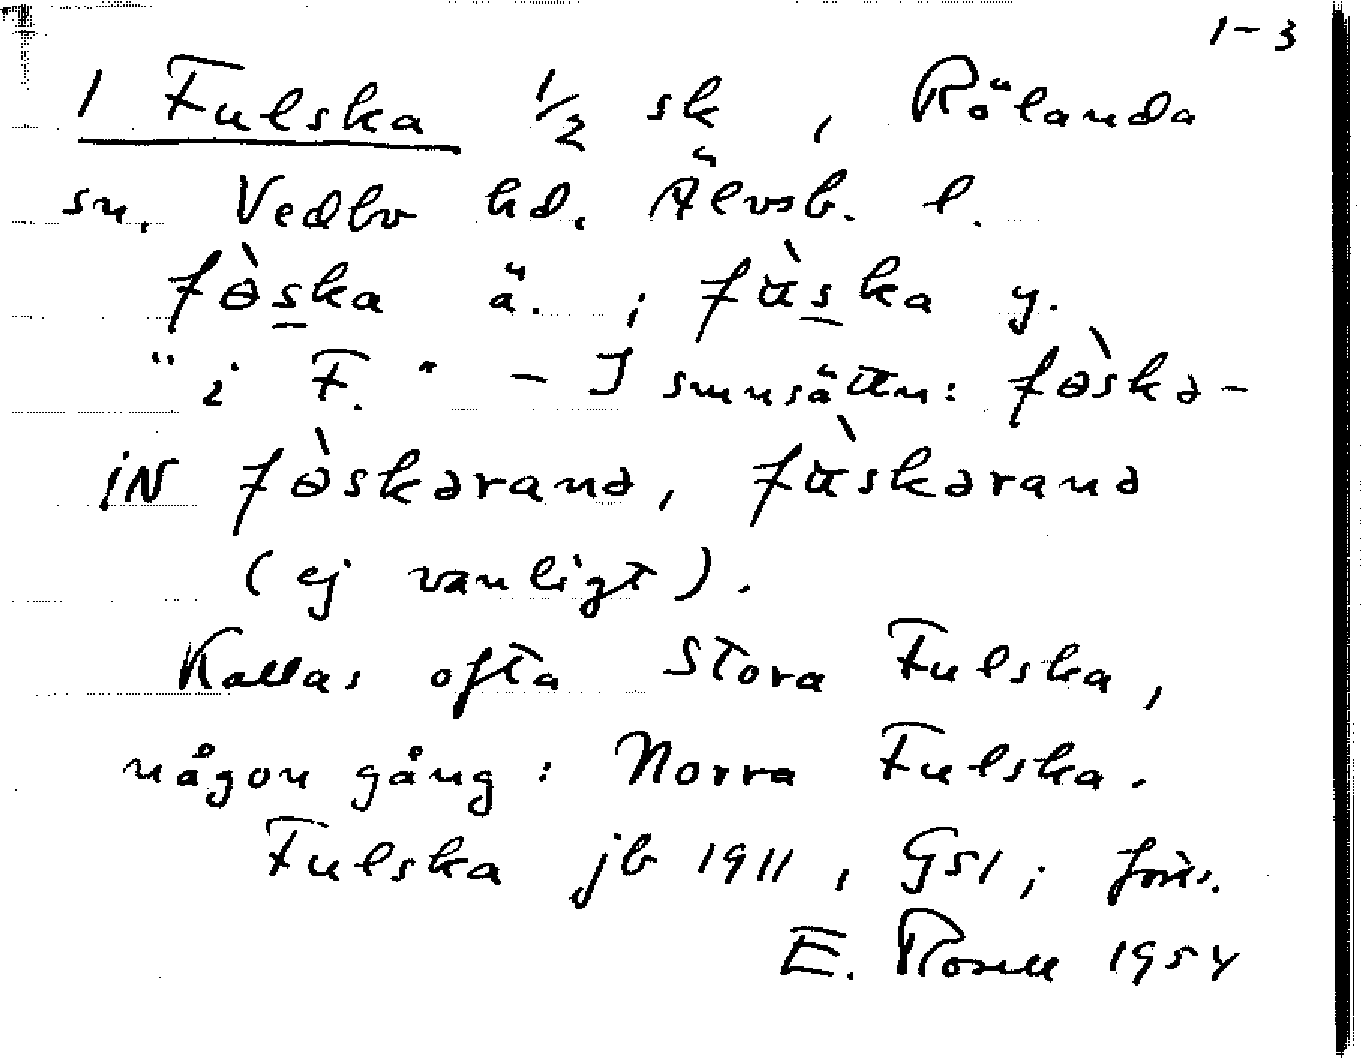 1-3
1 Fulska 1/2 sk, Rölanda
sn. Vedbo hd. Älvsb. l.
fɵ̀ska ä. ; fʉ̀ska y.
"i F." - I smnsättn: fɵ̀skə-
IN fɵ̀skəranə, fʉ̀skəranə
(ej vanligt).
Kallas ofta Stora Fulska,
någon gång: Norra Fulska.
Fulska jb 1911, GS1; förs.
E. Rosell 1954